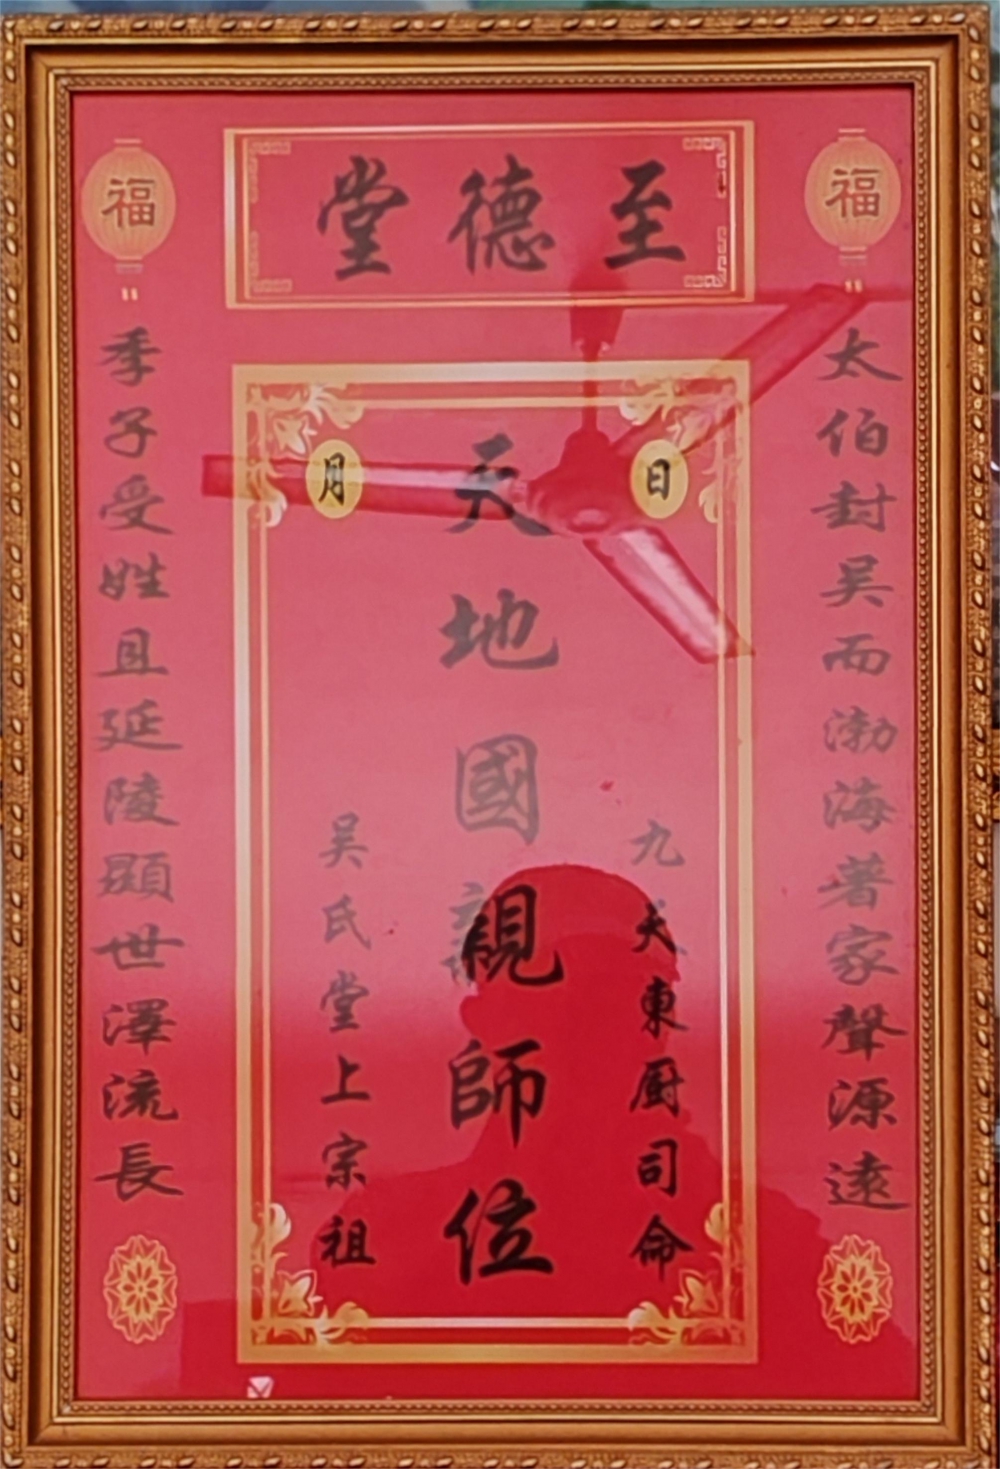 至德堂
福
福
太伯封吳而渤海著家聲源遠
日
月
九天東厨司命
天地國親師位
吳氏堂上宗祖
季子受姓且延陵顯世澤流長